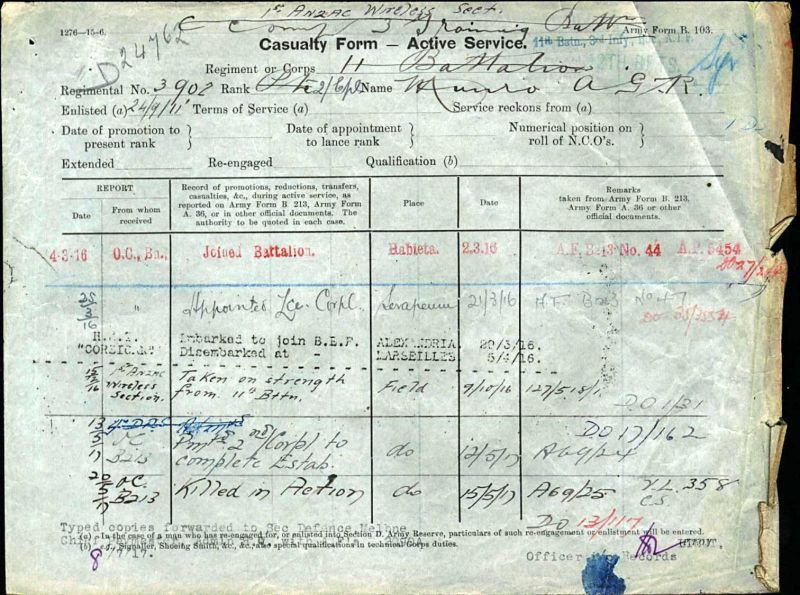 1st ANZAC Wireless Sect.
C Comp 3 Training Battn
D24762
1276—15-6.
Army Form B. 103.
Casualty Form — Active Service.
11th Batn., 3rd Inf.
Regiment or Corps 11 Battalion
Regimental No. 3902 Rank 2/Cpl Name Munro A G R.
Enlisted (a) 24/9/11 Terms of Service (a) Service reckons from (a)
Date of promotion to present rank } Date of appointment to lance rank } Numerical position on roll of N.C.O's. }
Extended Re-engaged Qualification (b)
REPORT
Date
From whom received
Record of promotions, reductions, transfers, casualties, &c., during active service, as reported on Army Form B 213, Army Form A. 36, or in other official documents. The authority to be quoted in each case.
Place
Date
Remarks
taken from Army Form B. 213, Army Form A. 36 or other official documents.
4-3-16 O.C., Bn., Joined Battalion. Habieta. 2.3.16 A.F. B213 No. 44 A.F. 5454
25/3/16 " Appointed Lce. Corpl. Serapeum 21/3/16 A.F. B213 No 47
"CORSICAN" Embarked to join B.E.F. ALEXANDRIA. 29/3/16.
Disembarked at - MARSEILLES 5/4/16.
1st ANZAC Wireless Section. Taken on strength from 11th Bttn. Field 9/10/16 127/518/1
DO 1/31
13/5/17 OC B213 Pmtd 2nd/Corpl to complete Estab. do 12/5/17 A69/24
DO 17/162
20/5/17 O.C. B213 Killed in Action do 15/5/17 A69/25 358
DO 13/117
Typed copies forwarded to Sec Defence, Melbne
(a) In the case of a man who has re-engaged for, or enlisted into Section D. Army Reserve, particulars of such re-engagement or enlistment will be entered.
(b) e.g., Signaller, Shoeing Smith, &c., &c., also special qualifications in technical Corps duties.
Lieut.,
Officer i/c Records